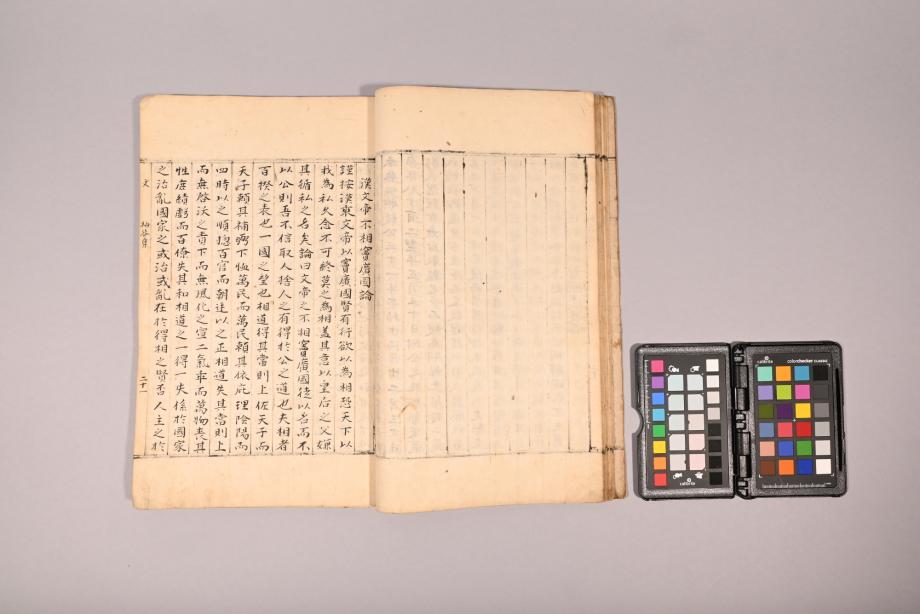 漢文帝不相竇廣國論
謹按漢東文帝以竇廣國賢有行欲以為相恐天下以
我為私久念不可終莫之為相盖其意以皇后之父嫌
其循私之名矣論曰文帝之不相竇廣國徒以名而不
以公則吾不信取人捨人之有得於公之道也夫相者
百揆之表也一國之望也相道得其當則上佐天子而
天子頼其補弼下恤萬民而萬民頼其依庇理陰陽而
四時以之順揔百官而朝廷以之正相道失其當則上
而無啓沃之責下而無風化之宣二氣乖而萬物喪其
性庶績虧而百僚失其和相道之一得一失係於國家
之治亂國家之或治或亂在於得相之賢否人主之於
文
二十一
calibrite
colorchecker classic
calibrite